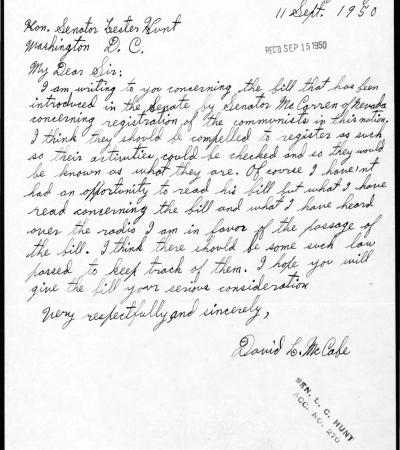 11 Sept. 1950
Hon. Senator Lester Hunt
Washington D. C.
REC'D SEP 15 1950
My Dear Sir:
I am writing to you concerning the bill that has been
introduced in the Senate by Senator McCarren of Nevada
concerning registration of the communists in this nation.
I think they should be compelled to register as such
so their activities could be checked and so they would
be known as what they are. Of course I have'nt
had an opportunity to read his bill but what I have
read concerning the bill and what I have heard
over the radio I am in favor of the passage of
the bill. I think there should be some such law
passed to keep track of them. I hope you will
give the bill your serious consideration
Very respectfully and sincerely,
David L. McCabe
SEN. L. C. HUNT
ACC. NO. 270